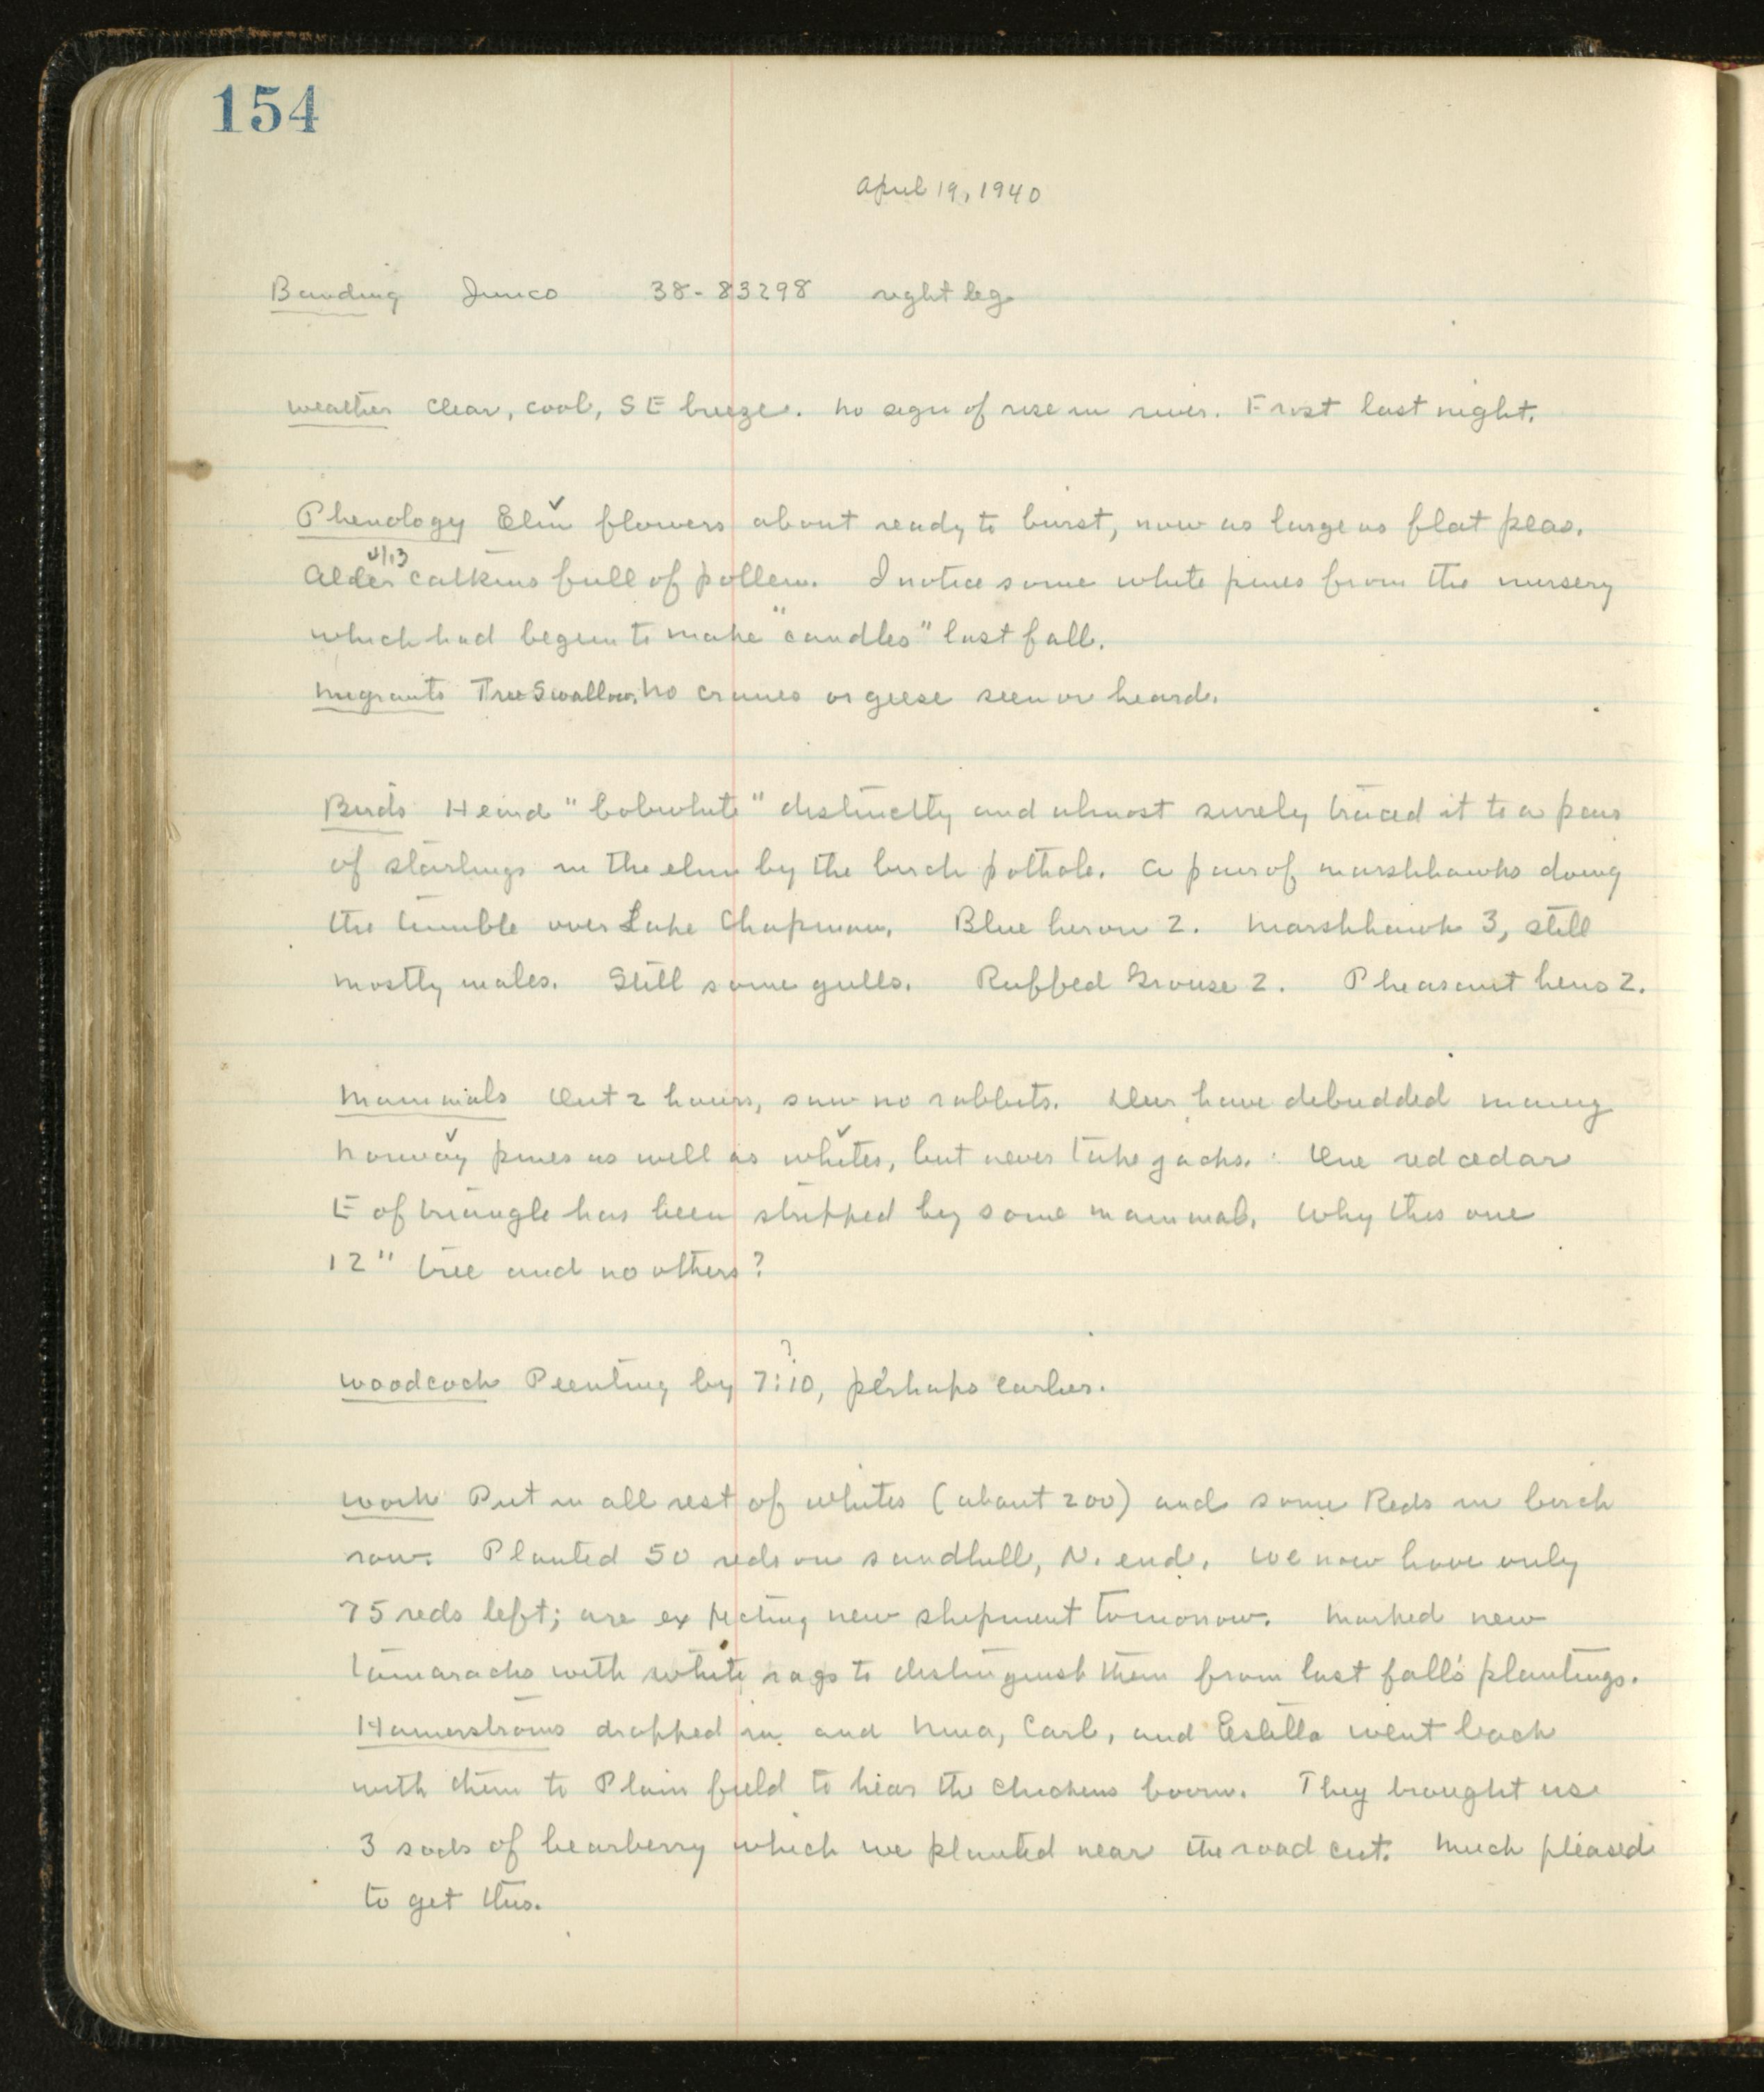 154
April 19, 1940
Banding Junco 38-83298 right leg
Weather Clear, cool, SE breeze. No sign of rise in river. Frost last night.
Phenology Elm flowers about ready to burst, now as large as flat peas.
4/13
Alder catkins full of pollen. I notice some white pines from the nursery
which had begun to make "candles" last fall.
Migrants Tree Swallow. No cranes or geese seen or heard.
Birds Heard "bobwhite" distinctly and almost surely traced it to a pair
of starlings in the elm by the birch pothole. A pair of marshhawks doing
the tumble over Lake Chapman. Blue heron 2. Marshhawk 3, still
mostly males. Still some gulls. Ruffed Grouse 2. Pheasant hens 2.
Mammals Out 2 hours, saw no rabbits. Deer have debudded many
Norway pines as well as whites, but never take jacks. One red cedar
E of triangle has been stripped by some mammal. Why this one
12" tree and no others?
?
Woodcock Peenting by 7:10, perhaps earlier.
Work Put in all rest of whites (about 200) and some Reds in birch
row. Planted 50 reds on sandhill, N. end. We now have only
75 reds left; are expecting new shipment tomorrow. Marked new
tamaracks with white rags to distinguish them from last fall's plantings.
Hamerstroms dropped in and Nina, Carl, and Estella went back
with them to Plainfield to hear the chickens boom. They brought us
3 sods of bearberry which we planted near the road cut. Much pleased
to get this.